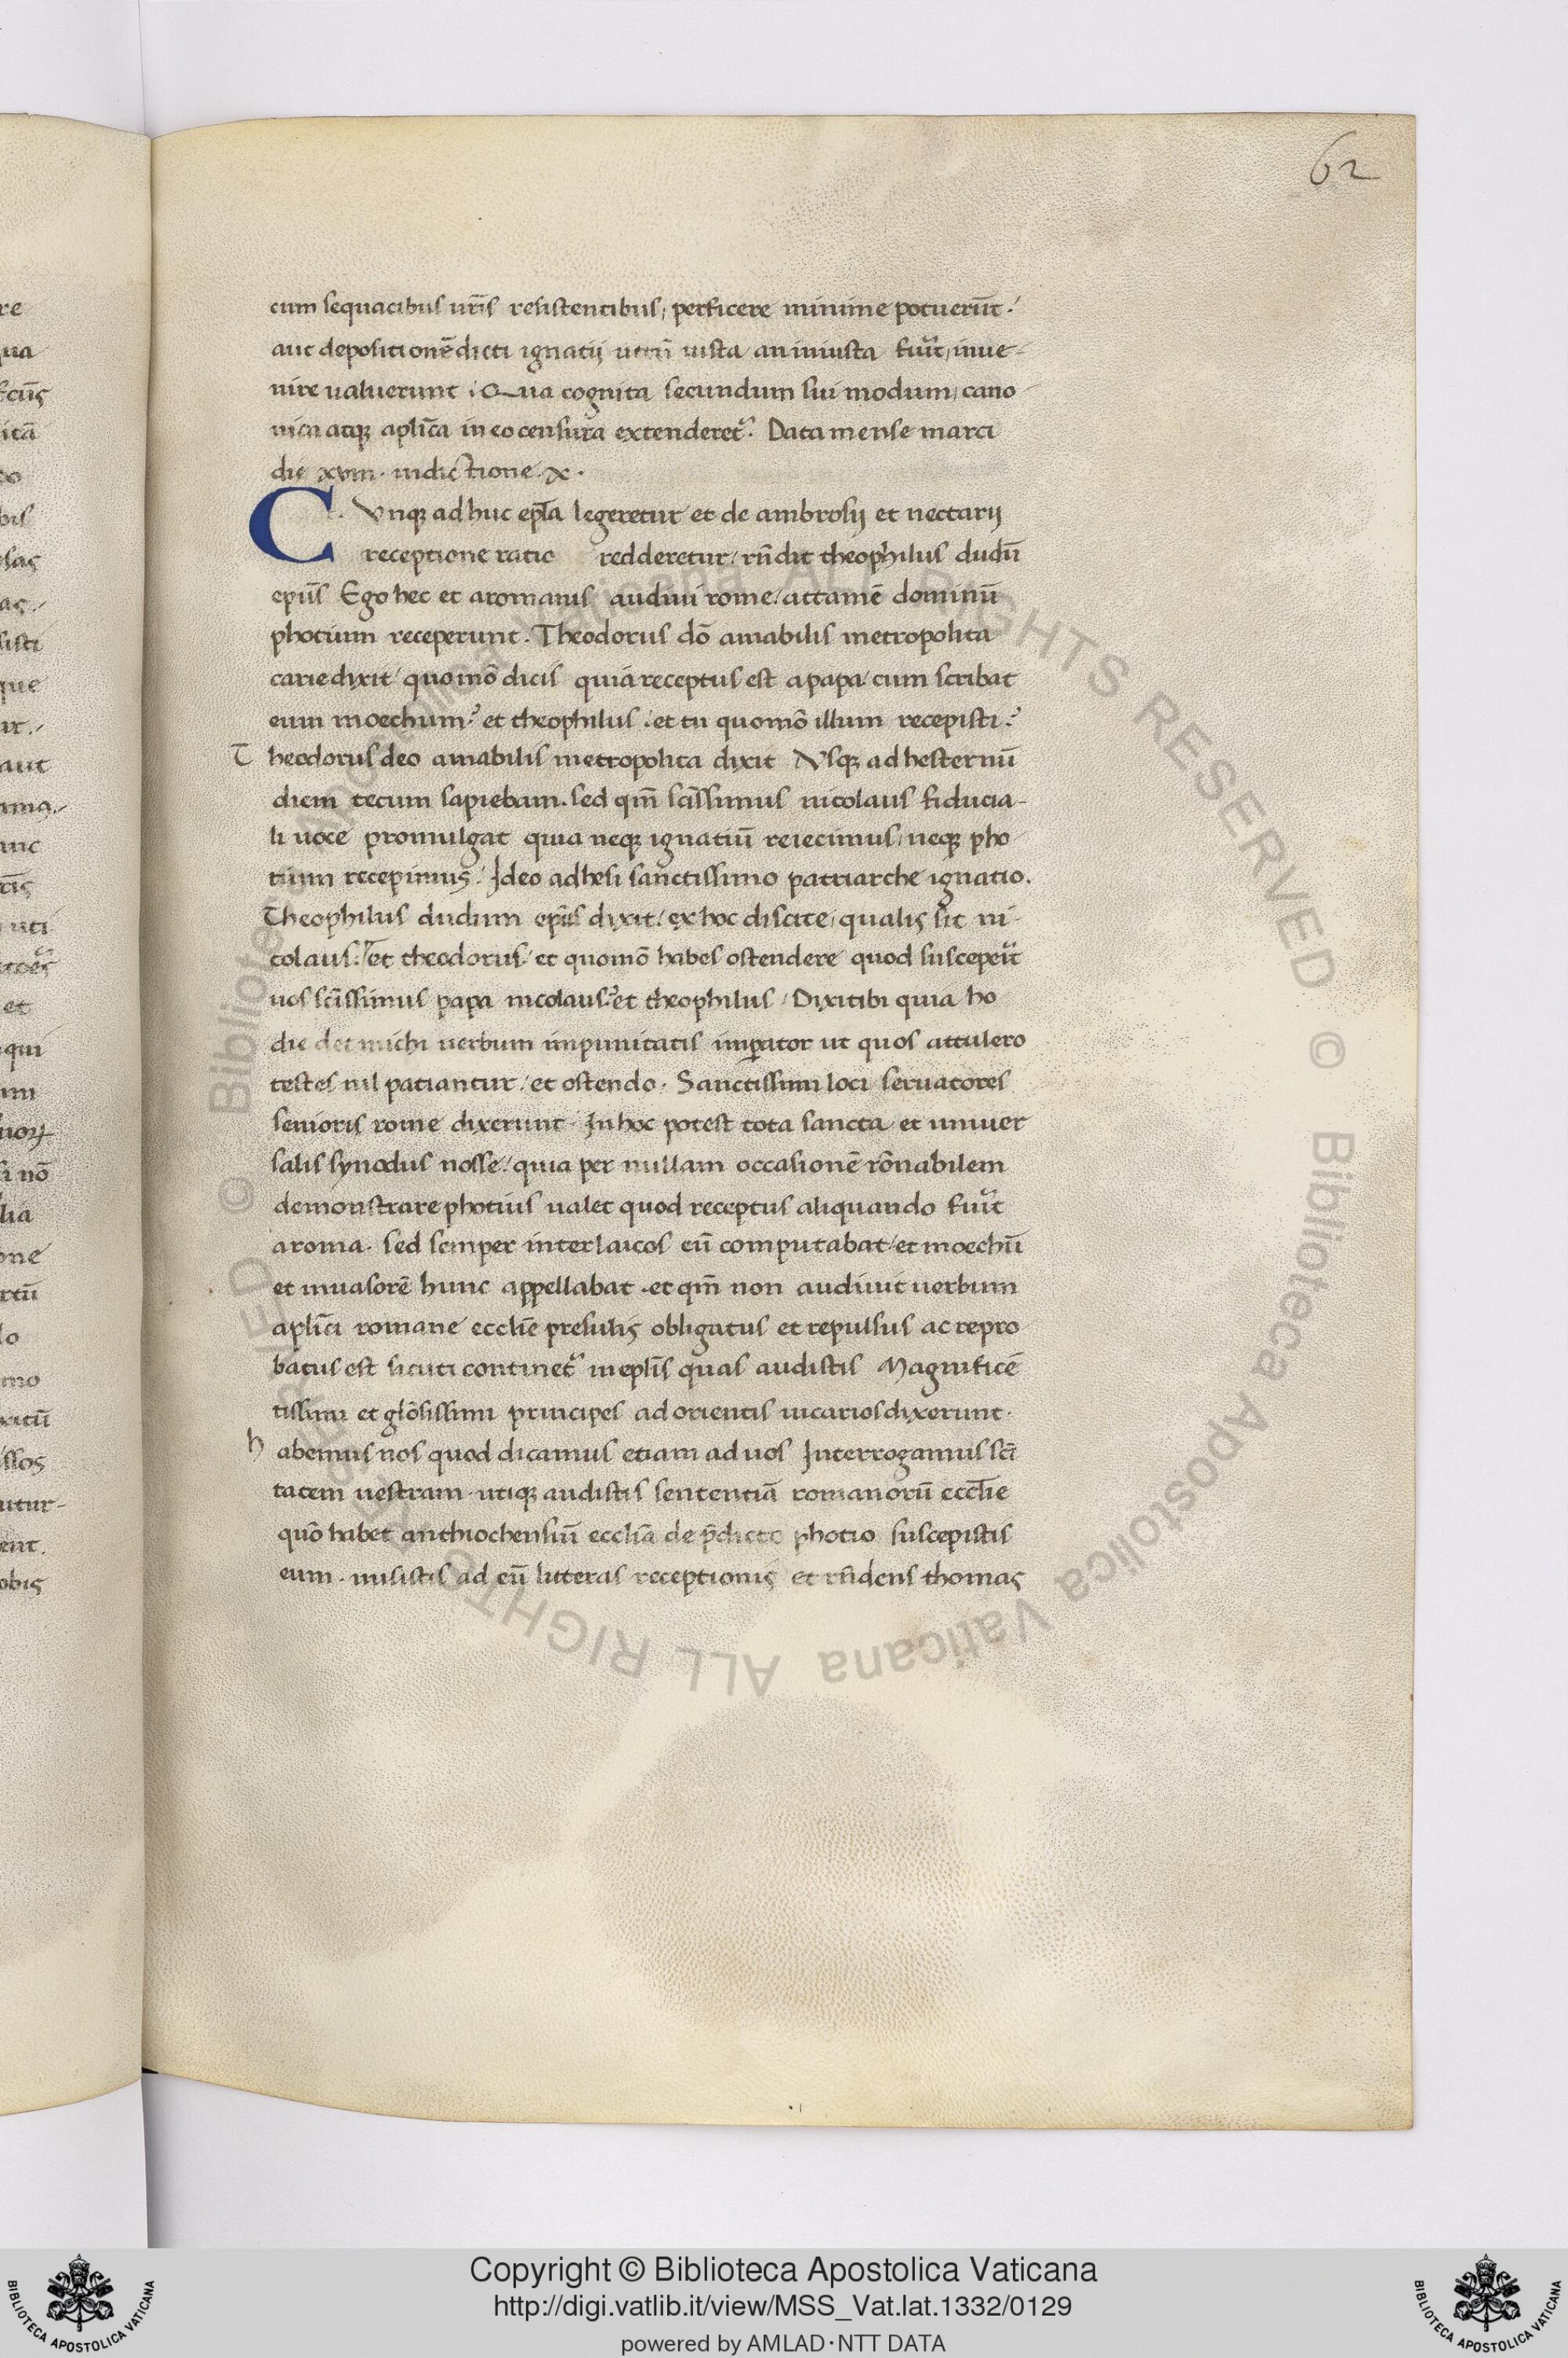 62
cum sequacibus ur̄is resistentibus, perficere minime potuerūt·/
aut depositionē dicti ignatij utrū iusta an iniusta fuĩt, inue-
nire ualuerunt ; Qua cognita secundum sui modum, cano-
nica atqꝫ apl̄ica in eo censura extenderet᷑. Data mense marci
die xviii. indictione .x.
C. Vnqꝫ ad huc epl̄a legeretur et de ambrosij et nectarij
receptione ratio redderetur/ rn̄dit theophilus dudū
ep̄us Ego hec et a romanis audiui rome/ attamē dominū
photium receperunt. Theodorus dō amabilis metropolita
carie dixit/ quomō dicis quia receptus est a papa/ cum scribat
eum moechum? et theophilus : et tu quomō illum recepisti?
Theodorus deo amabilis metropolita dixit Vsqꝫ ad hesternū
diem tecum sapiebam. sed qm̄ sc̄issimus nicolaus fiducia-
li uoce promulgat quia neqꝫ ignatiū reiecimus, neqꝫ pho
tium recepimus./ Ideo adhesi sanctissimo patriarche ignatio.
Theophilus dudum ep̄us dixit/ ex hoc discite, qualis sit ni-
colaus./ et theodorus/ et quomō habes ostendere quod susceperĩt
uos sc̄issimus papa nicolaus? et theophilus / Dixi tibi quia ho
die det michi uerbum impunitatis imꝑator ut quos attulero
testes nil patiantur/ et ostendo. Sanctissimi loci seruatores
senioris rome dixerunt. In hoc potest tota sancta et uniuer
salis synodus nosse/ quia per nullam occasionē rōnabilem
demonstrare photius ualet quod receptus aliquando fuĩt
a roma. sed semper inter laicos eū computabat/ et moechū
et inuasorē hunc appellabat. et qm̄ non audiuit uerbum
apl̄ici romane eccl̄ie presulis obligatus et repulsus ac repro
batus est sicuti continet᷑ in epl̄is quas audistis Magnificē
tissimi et gl̄osissimi principes ad orientis uicarios dixerunt.
habemus nos quod dicamus etiam ad uos Interrogamus sc̄i
tatem uestram. utiqꝫ audistis sententiā romanorū eccl̄ie
quō habet anthiochensiū eccl̄ia de p̄dicto photio suscepistis
eum. misistis ad eū litteras receptionis et rn̄dens thomas
Copyright © Biblioteca Apostolica Vaticana
http://digi.vatlib.it/view/MSS_Vat.lat.1332/0129
powered by AMLAD·NTT DATA